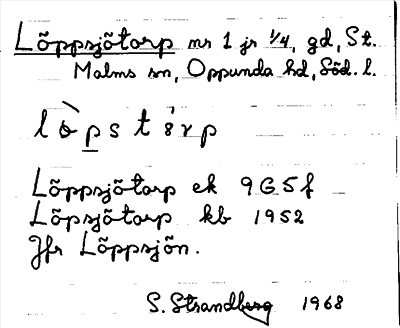 Löppsjötorp nr 1 jr 1/4, gd, St.
Malms sn, Oppunda hd, Söd. l.
lòpstȣ́rp
Löppsjötorp ek 9G5f
Löpsjötorp kb 1952
Jfr Löppsjön.
S. Strandberg 1968